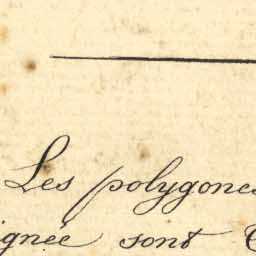 Les polygones
ignée sont